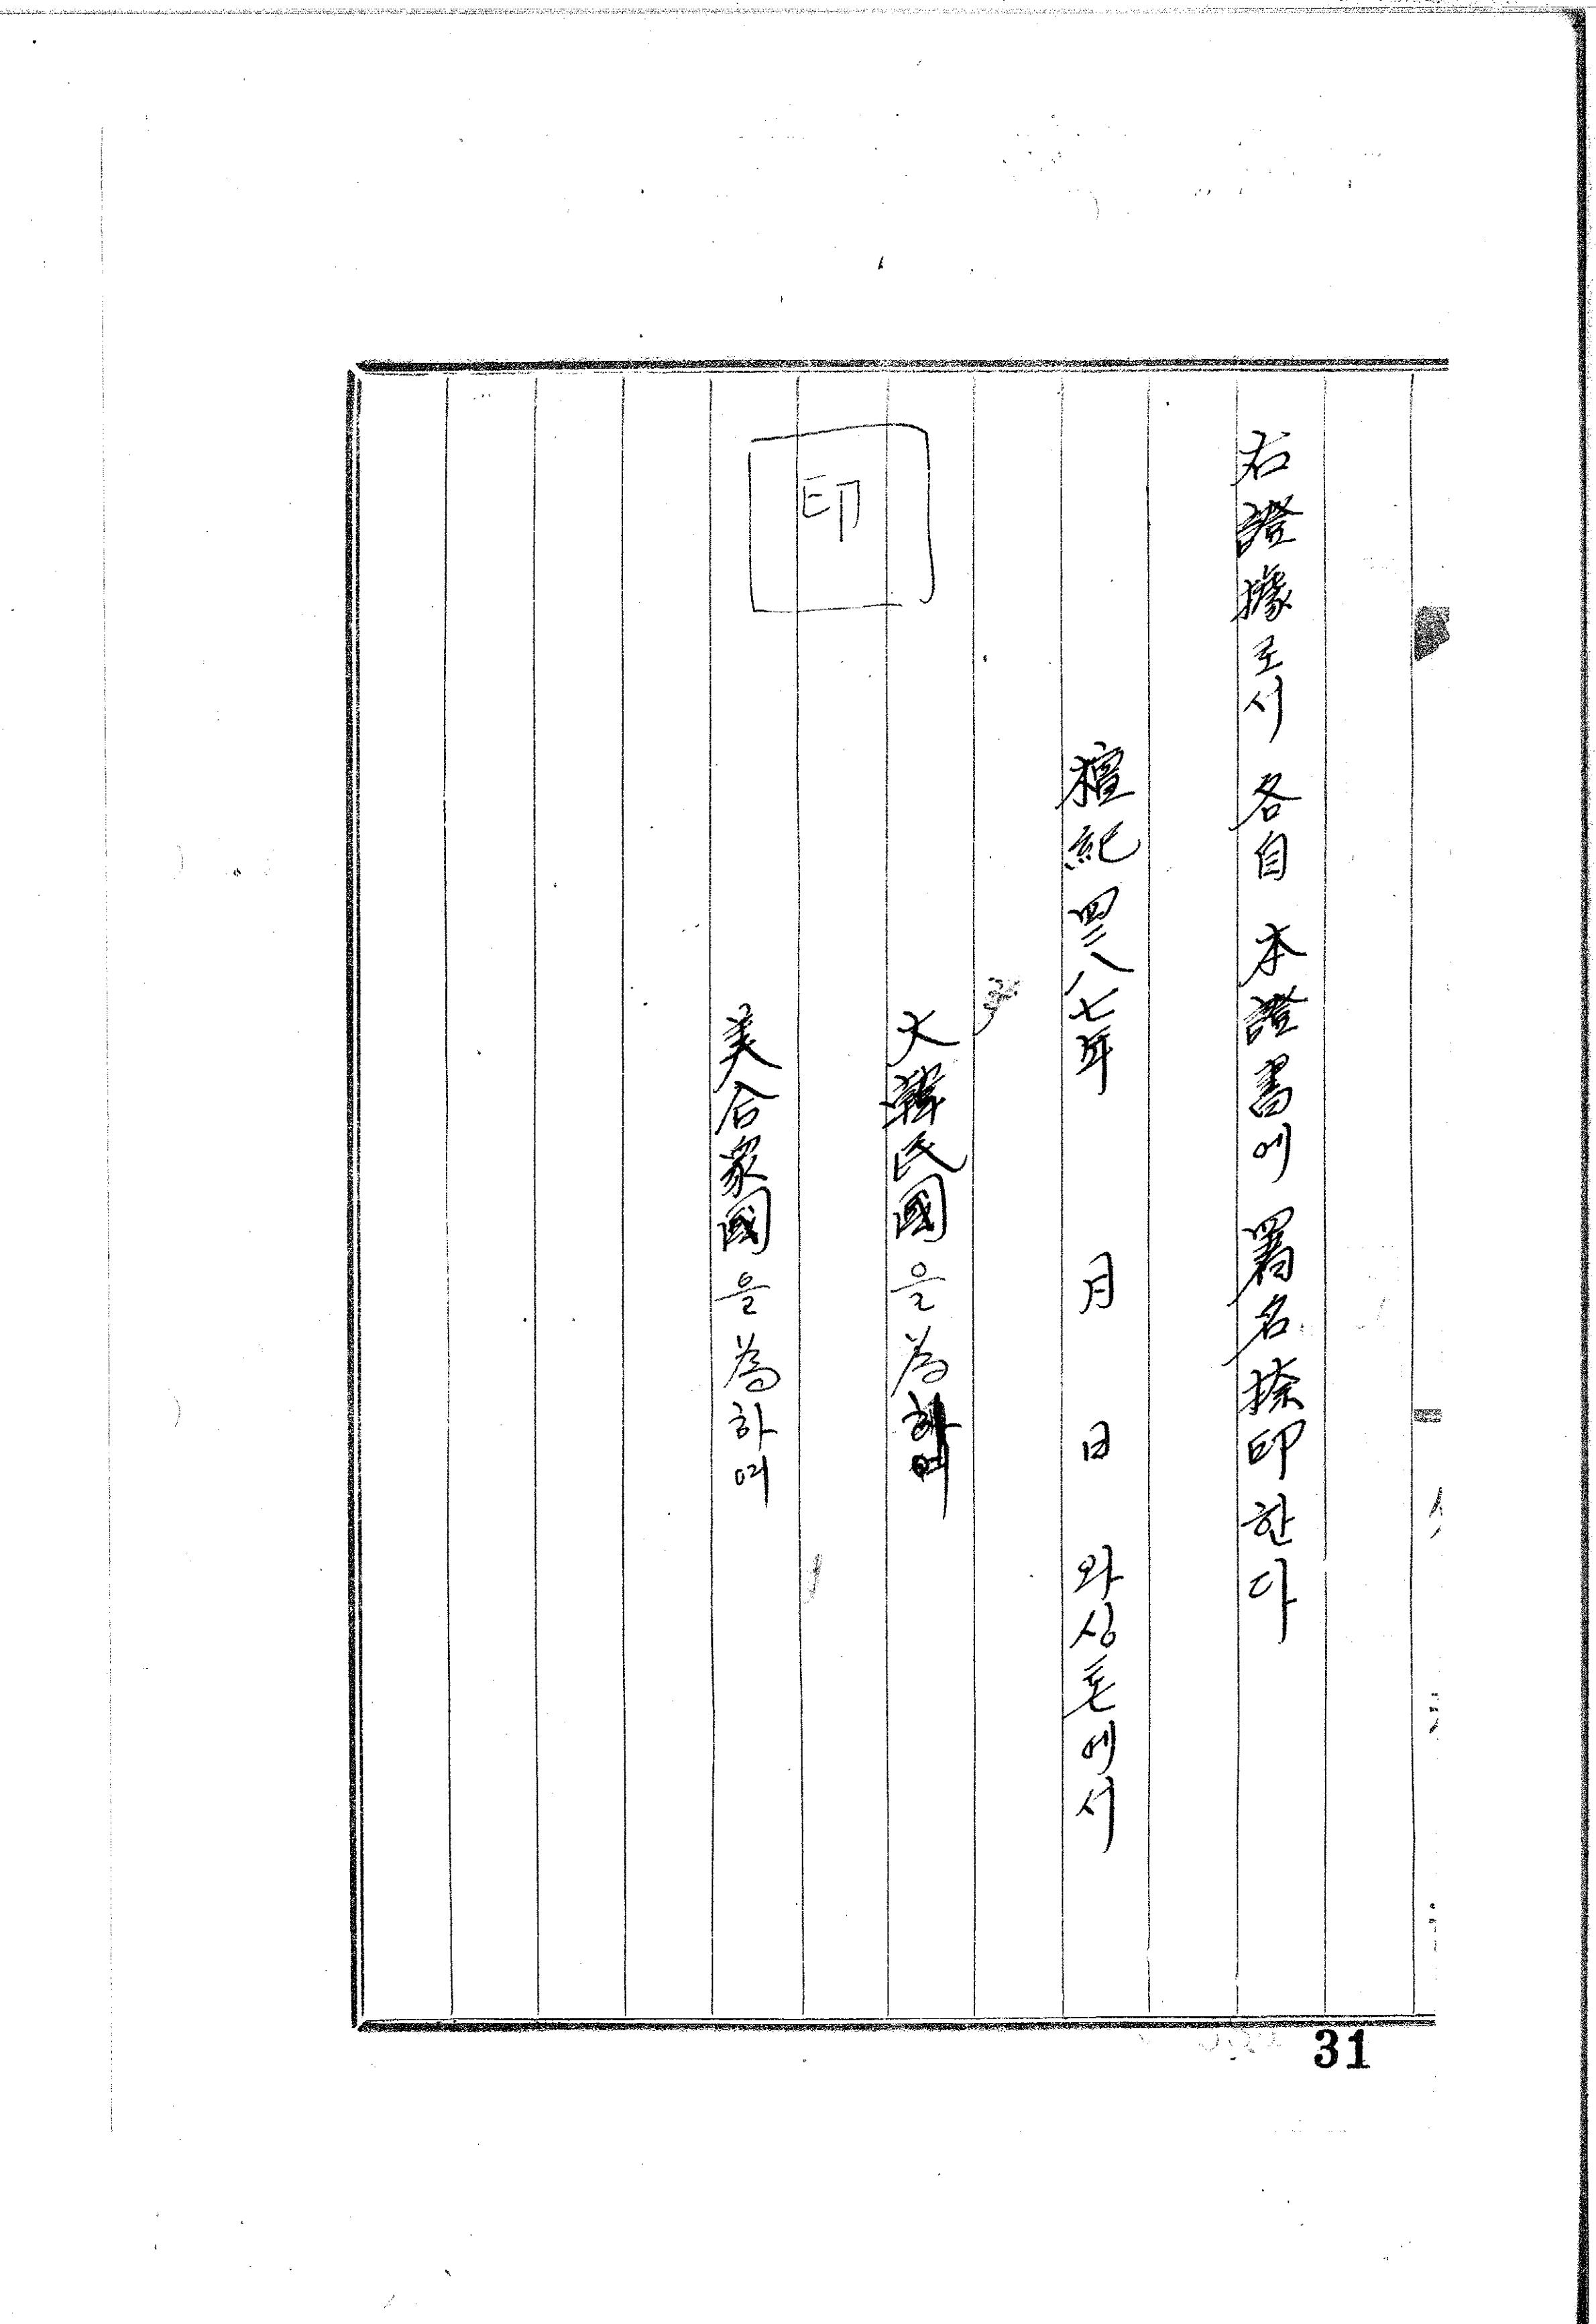 右證據로서 各自 本證書에 署名捺印한다
檀紀四二八七年 月 日 와싱톤에서
大韓民國을為하여
美合衆國을為하여
印
31